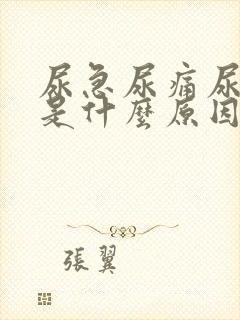 尿急尿痛尿
是什麼原因
張翼